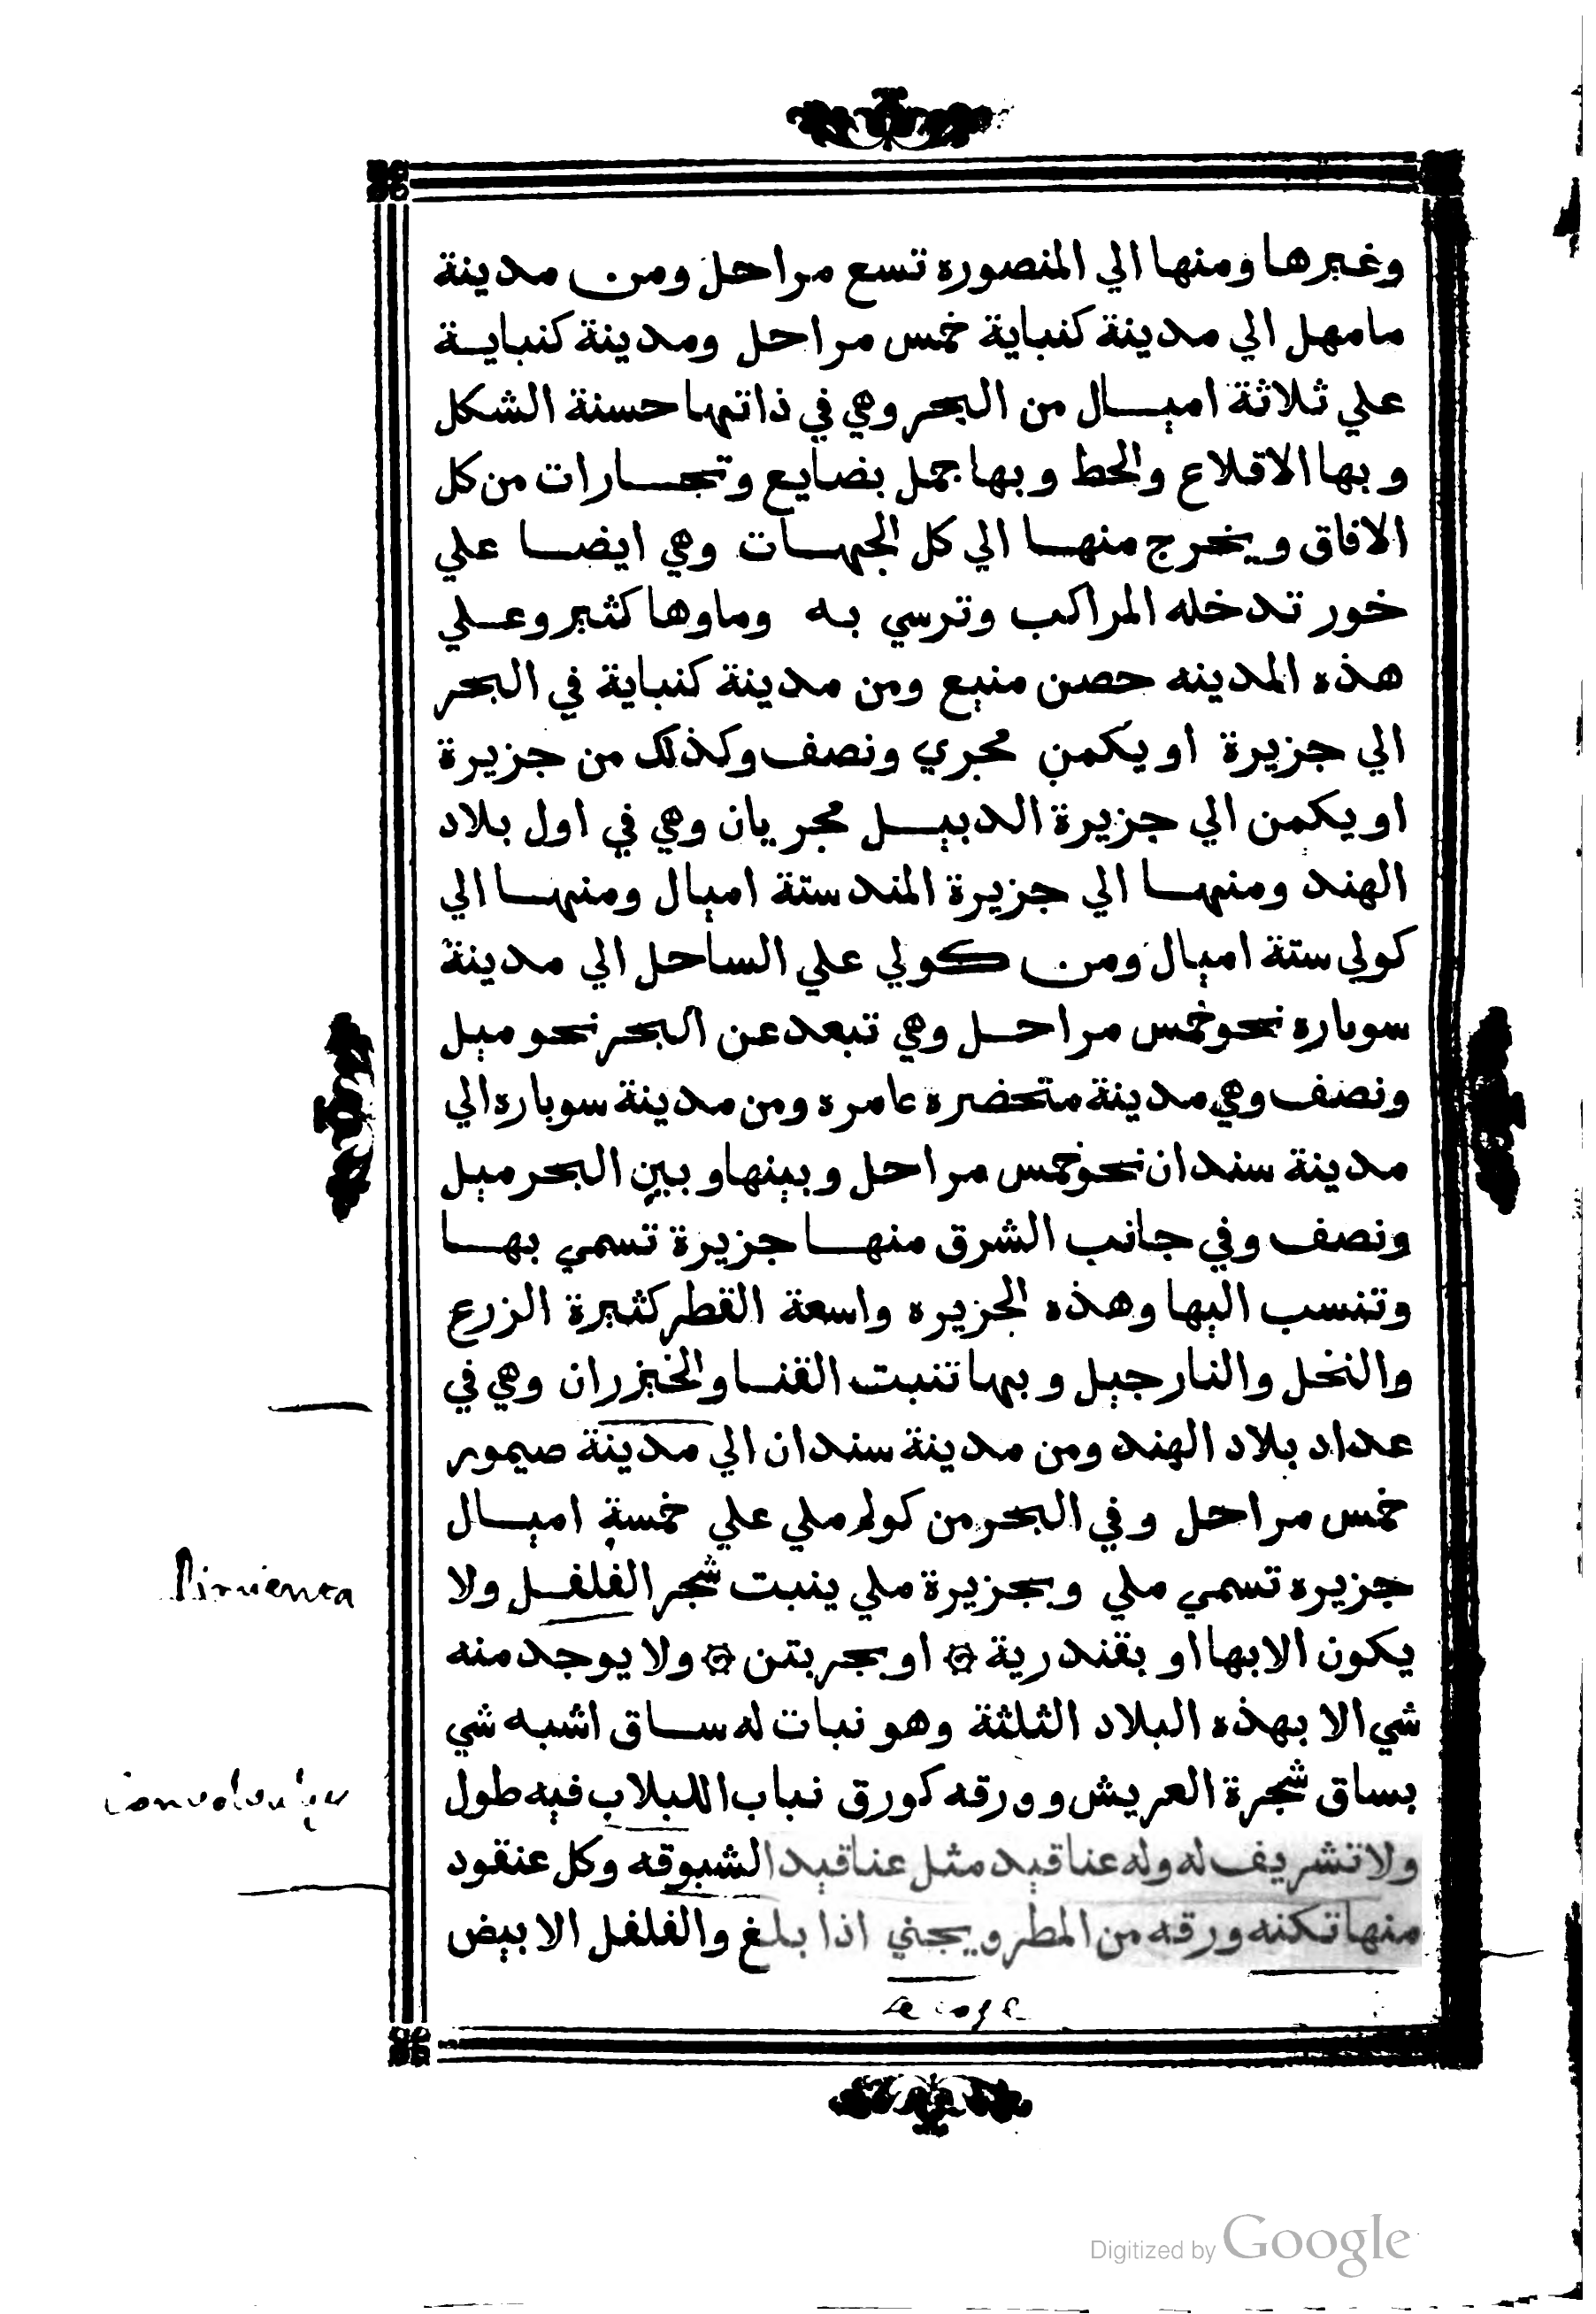 وغيرها ومنها الي المنصوره تسع مراحل ومن مدينة
مامهل الي مدينة كنباية خمس مراحل ومدينة كنباية
علي ثلاثة اميال من البحر وهي في ذاتها حسنة الشكل
وبها الاقلاع والحط وبها جمل بضايع وتجارات من كل
الافاق ويخرج منها الي كل الجهات وهي ايضا علي
خور تدخله المراكب وترسي به وماوها كثير وعلي
هذه المدينه حصن منيع ومن مدينة كنباية في البحر
الي جزيرة اويكمن مجري ونصف وكذلك من جزيرة
اويكمن الي جزيرة الدبيل مجريان وهي في اول بلاد
الهند ومنها الي جزيرة المند ستة اميال ومنها الي
كولي ستة اميال ومن كولي علي الساحل الي مدينة
سوباره نحو خمس مراحل وهي تبعد عن البحر نحو ميل
ونصف وهي مدينة متحضرة عامره ومن مدينة سوباره الي
مدينة سندان نحو خمس مراحل وبينها وبين البحر ميل
ونصف وفي جانب الشرق منها جزيرة تسمي بها
وتنسب اليها وهذه الجزيره واسعة القطر كثيرة الزرع
والنخل والنارجيل وبها تنبت القنا والخيزران وهي في
عداد بلاد الهند ومن مدينة سندان الي مدينة صيمور
خمس مراحل وفي البحر من كولم ملي علي خمسة اميال
جزيره تسمي ملي وبجزيرة ملي ينبت شجر الفلفل ولا
Pimienta
يكون الا بها او بقندرية ۞ او بجربتن ۞ ولا يوجد منه
شي الا بهذه البلاد الثلثة وهو نبات له ساق اشبه شي
بساق شجرة العريش وورقه كورق نباب اللبلاب فيه طول
ولا تشريف له وله عناقيد مثل عناقيد الشبوقه وكل عنقود
منها تكنه ورقه من المطر ويجني اذا بلغ والفلفل الابيض
Digitized by Google